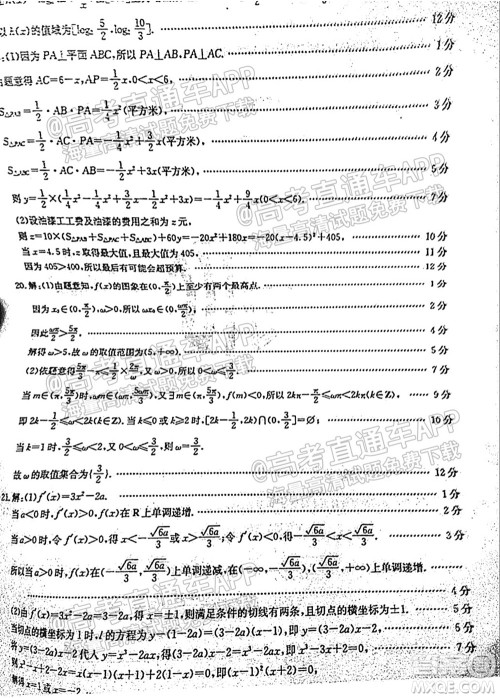 以h(x)的值域为[log₂ 5/2, log₂ 10/3]. 12分
:(1)因为PA⊥平面ABC,所以PA⊥AB,PA⊥AC. 1分
题意得AC=6-x,AP=1/2 x,0<x<6, 2分
S△PAB=1/2·AB·PA=1/4 x²(平方米),
S△PAC=1/2·AC·PA=-1/4 x²+3/2 x(平方米), 4分
S△ABC=1/2·AB·AC=-1/2 x²+3x(平方米), 5分
则y=1/2×(1/4 x²-1/4 x²+3/2 x-1/2 x²+3x)=-1/4 x²+9/4 x(0<x<6). 7分
(2)设涂漆工工费及涂漆的费用之和为z元,
则z=10×(S△PAB+S△PAC+S△ABC)+60y=-20x²+180x=-20(x-4.5)²+405, 10分
当x=4.5时,z取得最大值,且最大值为405, 11分
因为405>400,所以最后有可能会超预算. 12分
20.解:(1)由题意知,f(x)的图象在(0,π/2)上至少有两个最高点.
因为x₀∈(0,π/2),ω>0,所以ωx₀∈(0,ωπ/2), 2分
因此ωπ/2>5π/2, 4分
解得ω>5,故ω的取值范围为(5,+∞). 5分
(2)依题意得5π/3-π≤1/2×2π/ω,又ω>0,所以0<ω≤3/2, 6分
即2k-1/2≤ω<2k.当k≤0或k≥2时,[2k-1/2,2k)∩(0,3/2]=∅; 10分
当k=1时,3/2≤ω<2,又0<ω≤3/2,则ω=3/2.
故ω的取值集合为{3/2}. 12分
21.解:(1)f′(x)=3x²-2a. 1分
当a<0时,f′(x)>0,f(x)在R上单调递增. 2分
当a>0时,令f′(x)>0,得x<-√6a/3或x>√6a/3;令f′(x)<0,得-√6a/3<x<√6a/3. 3分
所以当a>0时,f(x)在(-√6a/3,√6a/3)上单调递减,在(-∞,-√6a/3),(√6a/3,+∞)上单调递增.
4分
(2)由f′(x)=3x²-2a=3-2a,得x=±1,则满足条件的切线有两条,且切点的横坐标为±1. 5分
当切点的横坐标为1时,l的方程为y-(1-2a)=(3-2a)(x-1),即y=(3-2a)x-2, 6分
将y=(3-2a)x-2代入y=x³-2ax,得(3-2a)x-2=x³-2ax,即x³-3x+2=0, 7分
则x³-x-2x+2=x(x-1)(x+1)-2(x-1)=0,即(x-1)²(x+2)=0,
解得x=1或x=-2.